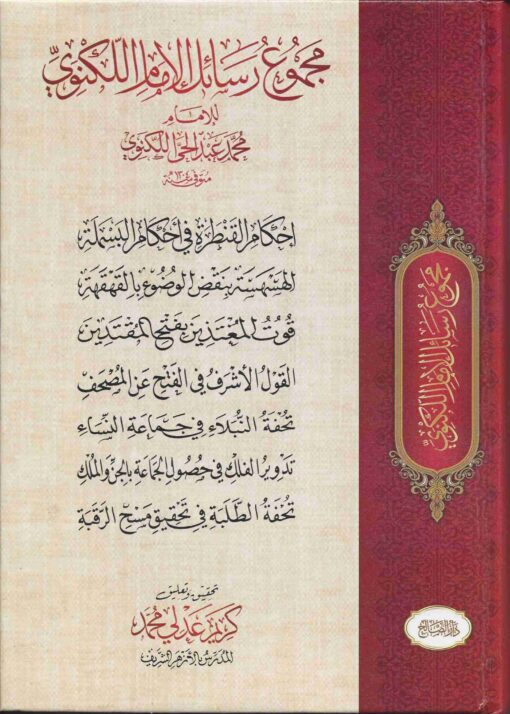 مجموع رسائل الإمام اللكنوي
للإمام
محمد عبد الحي اللكنوي
متوفى سنة ١٣٠٤
إحكام القنطرة في أحكام البسملة
الهسهسة بنقض الوضوء بالقهقهة
قوت المغتذين بفتح المقتدين
القول الأشرف في الفتح عن المصحف
تحفة النبلاء في جماعة النساء
تدوير الفلك في حصول الجماعة بالجن والملك
تحفة الطلبة في تحقيق مسح الرقبة
تحقيق وتعليق
كريم عدلي محمد
المدرس بالأزهر الشريف
مجموع رسائل الإمام اللكنوي